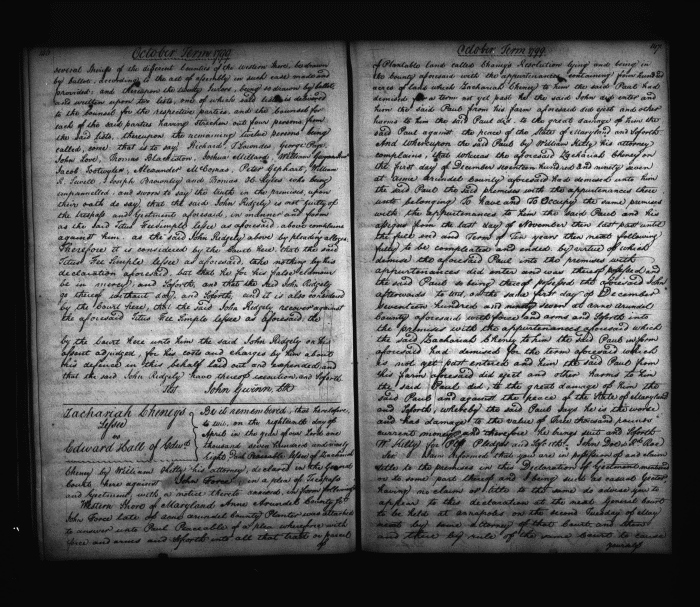 October Term 1799
several Sheriffs of the different Counties of the Western Shore, be drawn
by ballot, according to the act of assembly in such case made and
provided, and thereupon the twenty Jurors, being so drawn by ballot
and written upon two lists, one of which said lists is delivered
to the Counsel for the respective parties, and the Counsel for
each of the said parties having struck out four persons from
the said lists, thereupon the remaining twelve persons being
called, come, that is to say, Richard Lowndes, George Page,
John Love, Thomas Blackiston, Joshua Millard, William
Jacob Lootwyler, Alexander McComas, Peter Gephart, William
Joseph Brawnley and Thomas who being
impannelled, and sworn to say the truth in the premises, upon
their oath do say, that the said John Ridgely is not guilty of
the trespass and Ejectment aforesaid, in manner and form
as the said Titus Feesimple lessee as aforesaid, above complains
against him, as the said John Ridgely above by pleading alleges.
Therefore it is considered by the Court here, that the said
Titus Fee Simple lessee as aforesaid, take nothing by his
declaration aforesaid, but that he for his false clamour
be in mercy and soforth, and that the said John Ridgely
go thereof without day, and soforth, and it is also considered
by the Court here, that the said John Ridgely recover against
the aforesaid Titus Fee Simple lessee as aforesaid, the
by the Court Here unto him the said John Ridgely on his
assent adjudged, for his costs and charges by him about
his defence in this behalf laid out and expended, and
that the said John Ridgely have thereof execution, and soforth.
Test John Gwinn, Clk
Zachariah Cheney's
Lessee
vs
Edward Hall of Edwd.
Be it remembered, that heretofore,
to wit, on the eighteenth day of
April in the year of our Lord one
thousand seven hundred and ninety
eight Paul Peaceable lessee of Zachariah
Cheney by William Kilty his attorney, declared in the General
Court here against John Force on a plea of Trespass
and Ejectment, with a notice thereto annexed in form following
Western Shore of Maryland Anne Arundel County Sct.
John Force late of Anne Arundel County Planter was attached
to answer unto Paul Peaceable of a plea wherefore with
force and arms and soforth into all that tract or parcel
of
October Term 1799
of Plantable land called Chaney's Resolution lying and being in
the County aforesaid with the appurtenances containing four hundred
acres of land which Zachariah Cheney to him the said Paul had
demised for a term not yet past he the said John did enter and
him the said Paul from his farm aforesaid did eject and other
harms to him the said Paul did, to the great damage of him the
said Paul against the peace of the State of Maryland and soforth
And Whereupon the said Paul by William Kilty his attorney
complains, that whereas the aforesaid Zachariah Cheney on
the first day of December seventeen hundred and ninety seven
at Anne Arundel County aforesaid had demised unto him
the said Paul the said premises with the appurtenances there
unto belonging To Have and To Occupy the same premises
with the appurtenances to him the said Paul and his
assigns from the last day of November then last past until
the full end and Term of ten years then next following
fully to be compleated and ended by virtue of which
demise the aforesaid Paul into the premises with
appurtenances did enter and was thereof possessed and
the said Paul so being thereof possessed the aforesaid John
afterwards to wit, on the same first day of December
Seventeen hundred and ninety seven at Anne Arundel
County aforesaid with force and arms and soforth into
the premises with the appurtenances aforesaid which
the said Zachariah Cheney to him the said Paul in form
aforesaid had demised for the term aforesaid which
is not yet past entered and him the said Paul from
his farm aforesaid did eject and other harms to him
the said Paul did, to the great damage of him the
said Paul and against the peace of the State of Maryland
and soforth, whereby the said Paul says he is the worse
and has damage to the value of five thousand pounds
current money and therefore he brings suit and soforth.
W. Kilty for Plf Pledges and soforth John Doe & Rd Roe
Sir I am informed that you are in possession of and claim
title to the premises in this Declaration of Ejectment mentioned
or to some part thereof and I being sued as casual Ejector
having no claim or title to the same do advise you to
appear to this declaration at the next general Court
to be held at Annapolis on the second Tuesday of May
next by some attorney of that Court and then
and there by rule of the same Court to cause
yourself